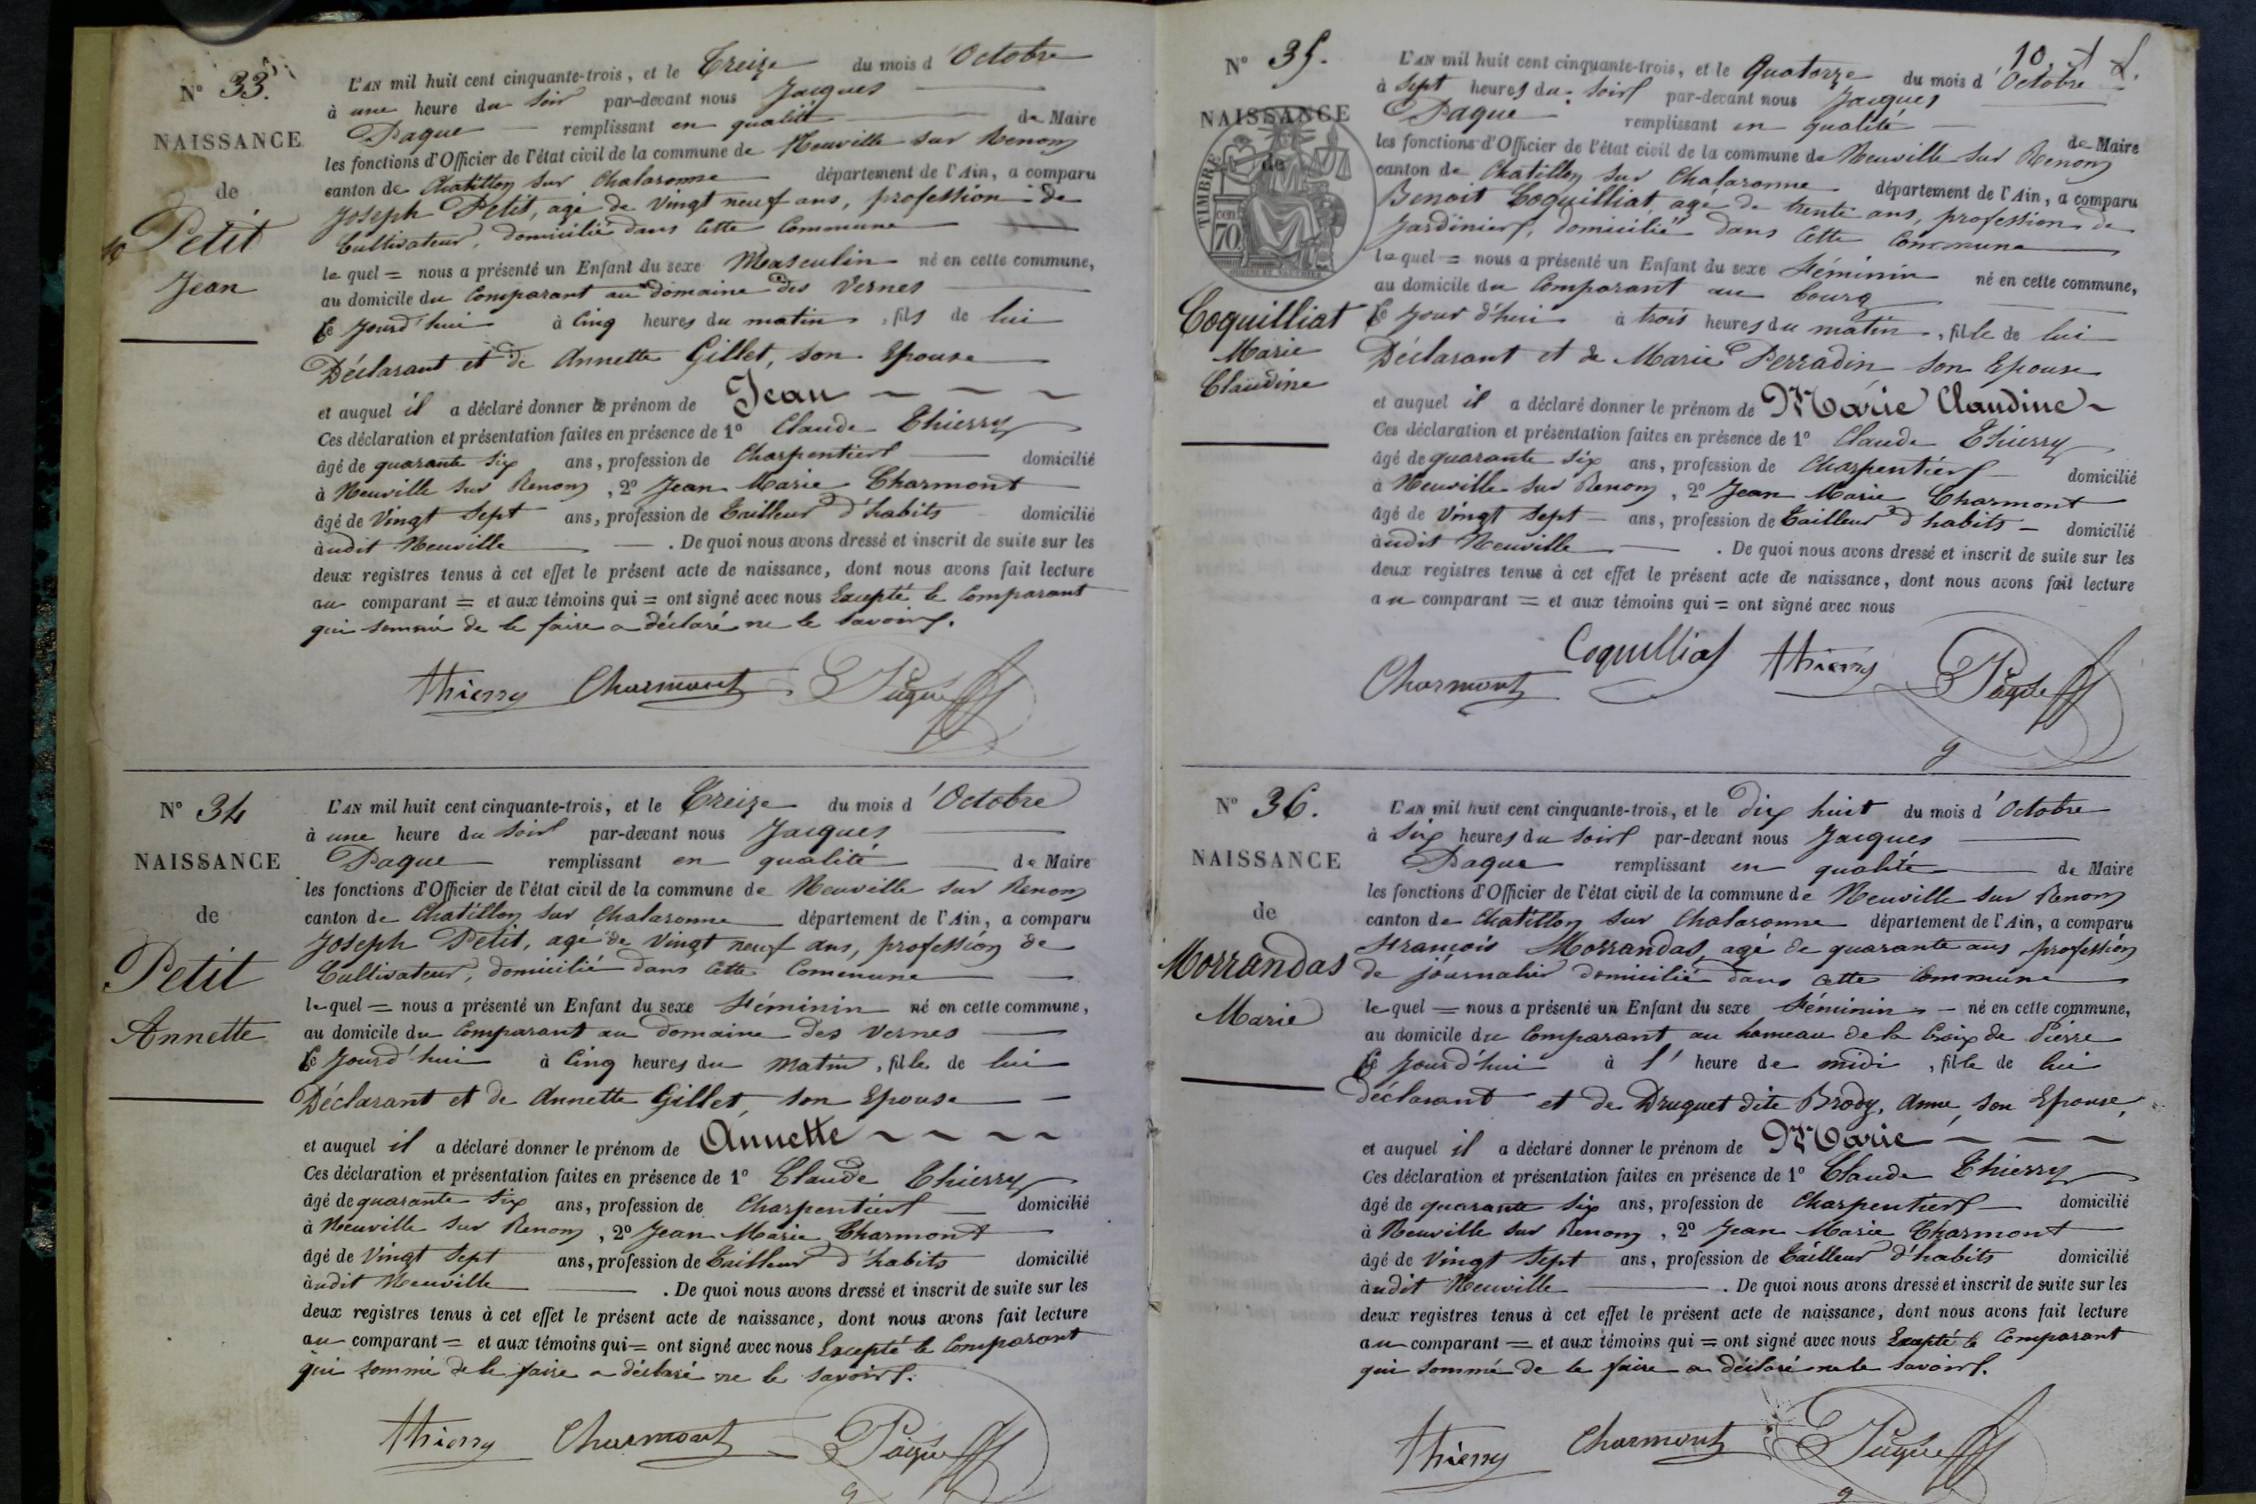 N° 33.
NAISSANCE
de
Petit
Jean
L'AN mil huit cent cinquante-trois, et le Treize du mois d'Octobre
à une heure du Soir par-devant nous Jacques
Paque remplissant en qualité de Maire
les fonctions d'Officier de l'état civil de la commune de Neuville sur Renom
canton de Chatillon sur Chalaronne département de l'Ain, a comparu
Joseph Petit, agé de vingt neuf ans, profession de
Cultivateur, domicilié dans cette Commune
lequel = nous a présenté un Enfant du sexe Masculin né en cette commune,
au domicile du Comparant au domaine des Vernes
Ce Jourd'hui à Cinq heures du matin, fils de lui
Déclarant et de Annette Gillet, son Epouse
et auquel il a déclaré donner le prénom de Jean
Ces déclaration et présentation faites en présence de 1° Claude Thierry
âgé de quarante six ans, profession de Charpentier domicilié
à Neuville sur Renom, 2° Jean Marie Charmont
âgé de Vingt Sept ans, profession de Tailleur d'habits domicilié
audit Neuville . De quoi nous avons dressé et inscrit de suite sur les
deux registres tenus à cet effet le présent acte de naissance, dont nous avons fait lecture
au comparant = et aux témoins qui = ont signé avec nous Excepté le Comparant
qui sommé de le faire a déclaré ne le savoir.
Thierry Charmont Paque
N° 34
NAISSANCE
de
Petit
Annette
L'AN mil huit cent cinquante-trois, et le Treize du mois d'Octobre
à une heure du Soir par-devant nous Jacques
Paque remplissant en qualité de Maire
les fonctions d'Officier de l'état civil de la commune de Neuville sur Renom
canton de Chatillon sur Chalaronne département de l'Ain, a comparu
Joseph Petit, agé de vingt neuf ans, profession de
Cultivateur, domicilié dans cette Commune
lequel = nous a présenté un Enfant du sexe Féminin né en cette commune,
au domicile du Comparant au domaine des Vernes
Ce Jourd'hui à Cinq heures du matin, fille de lui
Déclarant et de Annette Gillet, son Epouse
et auquel il a déclaré donner le prénom de Annette
Ces déclaration et présentation faites en présence de 1° Claude Thierry
âgé de quarante six ans, profession de Charpentier domicilié
à Neuville sur Renom, 2° Jean Marie Charmont
âgé de Vingt Sept ans, profession de Tailleur d'habits domicilié
audit Neuville . De quoi nous avons dressé et inscrit de suite sur les
deux registres tenus à cet effet le présent acte de naissance, dont nous avons fait lecture
au comparant = et aux témoins qui = ont signé avec nous Excepté le Comparant
qui sommé de le faire a déclaré ne le savoir.
Thierry Charmont Paque
10.
N° 35.
NAISSANCE
de
TIMBRE
70
Coquilliat
Marie
Claudine
L'AN mil huit cent cinquante-trois, et le Quatorze du mois d'Octobre
à Sept heures du Soir par-devant nous Jacques
Paque remplissant en qualité de Maire
les fonctions d'Officier de l'état civil de la commune de Neuville sur Renom
canton de Chatillon sur Chalaronne département de l'Ain, a comparu
Benoit Coquilliat agé de trente ans, profession de
Jardinier, domicilié dans cette Commune
lequel = nous a présenté un Enfant du sexe Féminin né en cette commune,
au domicile du Comparant au bourg
Ce jour d'hui à trois heures du matin, fille de lui
Déclarant et de Marie Perradin son Epouse
et auquel il a déclaré donner le prénom de Marie Claudine
Ces déclaration et présentation faites en présence de 1° Claude Thierry
âgé de quarante six ans, profession de Charpentier domicilié
à Neuville sur Renom, 2° Jean Marie Charmont
âgé de Vingt Sept ans, profession de Tailleur d'habits domicilié
audit Neuville . De quoi nous avons dressé et inscrit de suite sur les
deux registres tenus à cet effet le présent acte de naissance, dont nous avons fait lecture
au comparant = et aux témoins qui = ont signé avec nous
Charmont Coquilliat Thierry Paque
N° 36.
NAISSANCE
de
Morrandas
Marie
L'AN mil huit cent cinquante-trois, et le dix huit du mois d'Octobre
à Six heures du Soir par-devant nous Jacques
Paque remplissant en qualité de Maire
les fonctions d'Officier de l'état civil de la commune de Neuville sur Renom
canton de Chatillon sur Chalaronne département de l'Ain, a comparu
François Morrandas, agé de quarante ans profession
de journalier domicilié dans cette Commune
lequel = nous a présenté un Enfant du sexe Féminin né en cette commune,
au domicile du Comparant au hameau de la Croix de Pierre
Ce Jourd'hui à l'heure de midi, fille de lui
déclarant et de Druguet dite Brody, Anne, son Epouse,
et auquel il a déclaré donner le prénom de Marie
Ces déclaration et présentation faites en présence de 1° Claude Thierry
âgé de quarante six ans, profession de Charpentier domicilié
à Neuville sur Renom, 2° Jean Marie Charmont
âgé de Vingt Sept ans, profession de Tailleur d'habits domicilié
audit Neuville . De quoi nous avons dressé et inscrit de suite sur les
deux registres tenus à cet effet le présent acte de naissance, dont nous avons fait lecture
au comparant = et aux témoins qui = ont signé avec nous Excepté le Comparant
qui sommé de le faire a déclaré ne le savoir.
Thierry Charmont Paque